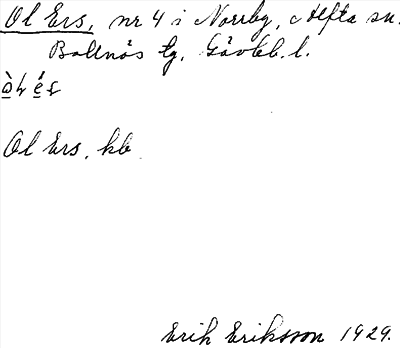 Ol Ers, nr 4 i Norrby, Alfta sn.
Bollnäs tg. Gävleb. l.
Ol Ers, kb.
Erik Eriksson 1929.